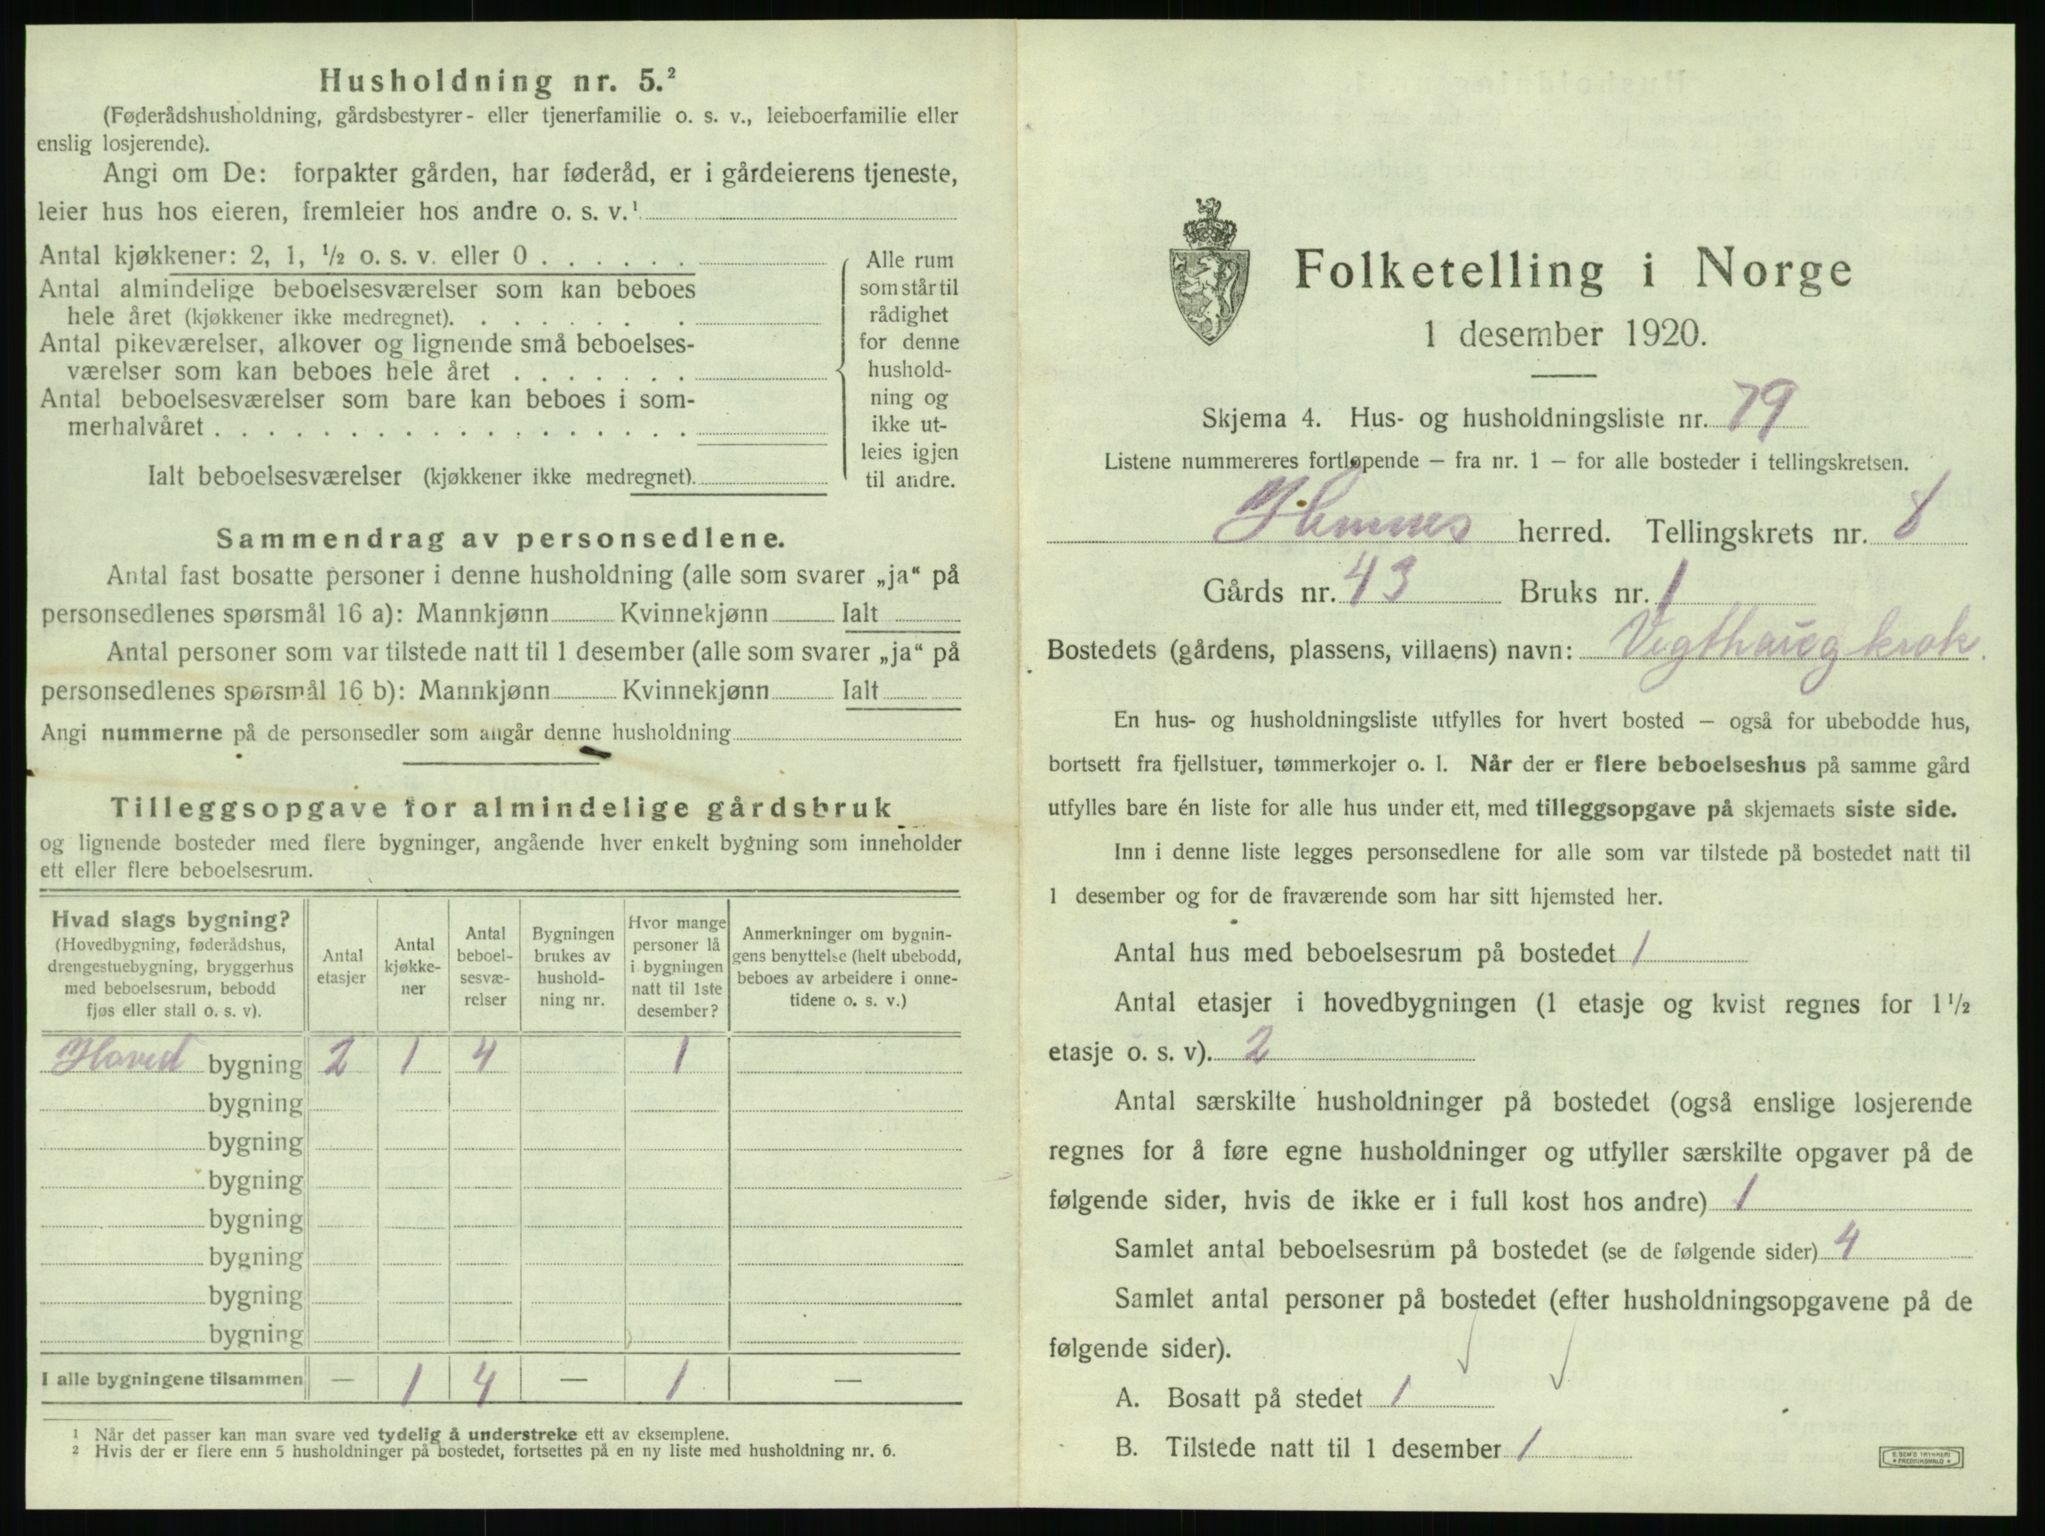 Husholdning nr. 5.²
(Føderådshusholdning, gårdsbestyrer- eller tjenerfamilie o. s. v., leieboerfamilie eller
enslig losjerende).
Angi om De: forpakter gården, har føderåd, er i gårdeierens tjeneste,
leier hus hos eieren, fremleier hos andre o. s. v.¹
Antal kjøkkener: 2, 1, ½ o. s. v. eller 0 . . . . . .
Antal almindelige beboelsesværelser som kan beboes
hele året (kjøkkener ikke medregnet). . . . . . . . .
Antal pikeværelser, alkover og lignende små beboelses-
værelser som kan beboes hele året . . . . . . .
Antal beboelsesværelser som bare kan beboes i som-
merhalvåret . . . . . . . . . . . . . . . . . .
Ialt beboelsesværelser (kjøkkener ikke medregnet).
Alle rum
som står til
rådighet
for denne
hushold-
ning og
ikke ut-
leies igjen
til andre.
Sammendrag av personsedlene.
Antal fast bosatte personer i denne husholdning (alle som svarer „ja“ på
personsedlenes spørsmål 16 a): Mannkjønn Kvinnekjønn Ialt
Antal personer som var tilstede natt til 1 desember (alle som svarer „ja“ på
personsedlenes spørsmål 16 b): Mannkjønn Kvinnekjønn Ialt
Angi nummerne på de personsedler som angår denne husholdning
Tilleggsopgave for almindelige gårdsbruk
og lignende bosteder med flere bygninger, angående hver enkelt bygning som inneholder
ett eller flere beboelsesrum.
Hvad slags bygning?
(Hovedbygning, føderådshus,
drengestuebygning, bryggerhus
med beboelsesrum, bebodd
fjøs eller stall o. s. v).
Antal
etasjer
Antal
kjøkke-
ner
Antal
beboel-
sesvæ-
relser
Bygningen
brukes av
hushold-
ning nr.
Hvor mange
personer lå
i bygningen
natt til 1ste
desember?
Anmerkninger om bygnin-
gens benyttelse (helt ubebodd,
beboes av arbeidere i onne-
tidene o. s. v.)
Hoved bygning 2 1 4 1
bygning
bygning
bygning
bygning
bygning
bygning
bygning
I alle bygningene tilsammen — 1 4 — 1 —
¹ Når det passer kan man svare ved tydelig å understreke ett av eksemplene.
² Hvis der er flere enn 5 husholdninger på bostedet, fortsettes på en ny liste med husholdning nr. 6.
Folketelling i Norge
1 desember 1920.
Skjema 4. Hus- og husholdningsliste nr. 79
Listene nummereres fortløpende – fra nr. 1 – for alle bosteder i tellingskretsen.
Hemnes herred. Tellingskrets nr. 8
Gårds nr. 43 Bruks nr. 1
Bostedets (gårdens, plassens, villaens) navn: Vegthaugkrok.
En hus- og husholdningsliste utfylles for hvert bosted – også for ubebodde hus,
bortsett fra fjellstuer, tømmerkojer o. l. Når der er flere beboelseshus på samme gård
utfylles bare én liste for alle hus under ett, med tilleggsopgave på skjemaets siste side.
Inn i denne liste legges personsedlene for alle som var tilstede på bostedet natt til
1 desember og for de fraværende som har sitt hjemsted her.
Antal hus med beboelsesrum på bostedet 1
Antal etasjer i hovedbygningen (1 etasje og kvist regnes for 1½
etasje o. s. v). 2
Antal særskilte husholdninger på bostedet (også enslige losjerende
regnes for å føre egne husholdninger og utfyller særskilte opgaver på de
følgende sider, hvis de ikke er i full kost hos andre) 1
Samlet antal beboelsesrum på bostedet (se de følgende sider) 4
Samlet antal personer på bostedet (efter husholdningsopgavene på de
følgende sider).
A. Bosatt på stedet 1
B. Tilstede natt til 1 desember 1